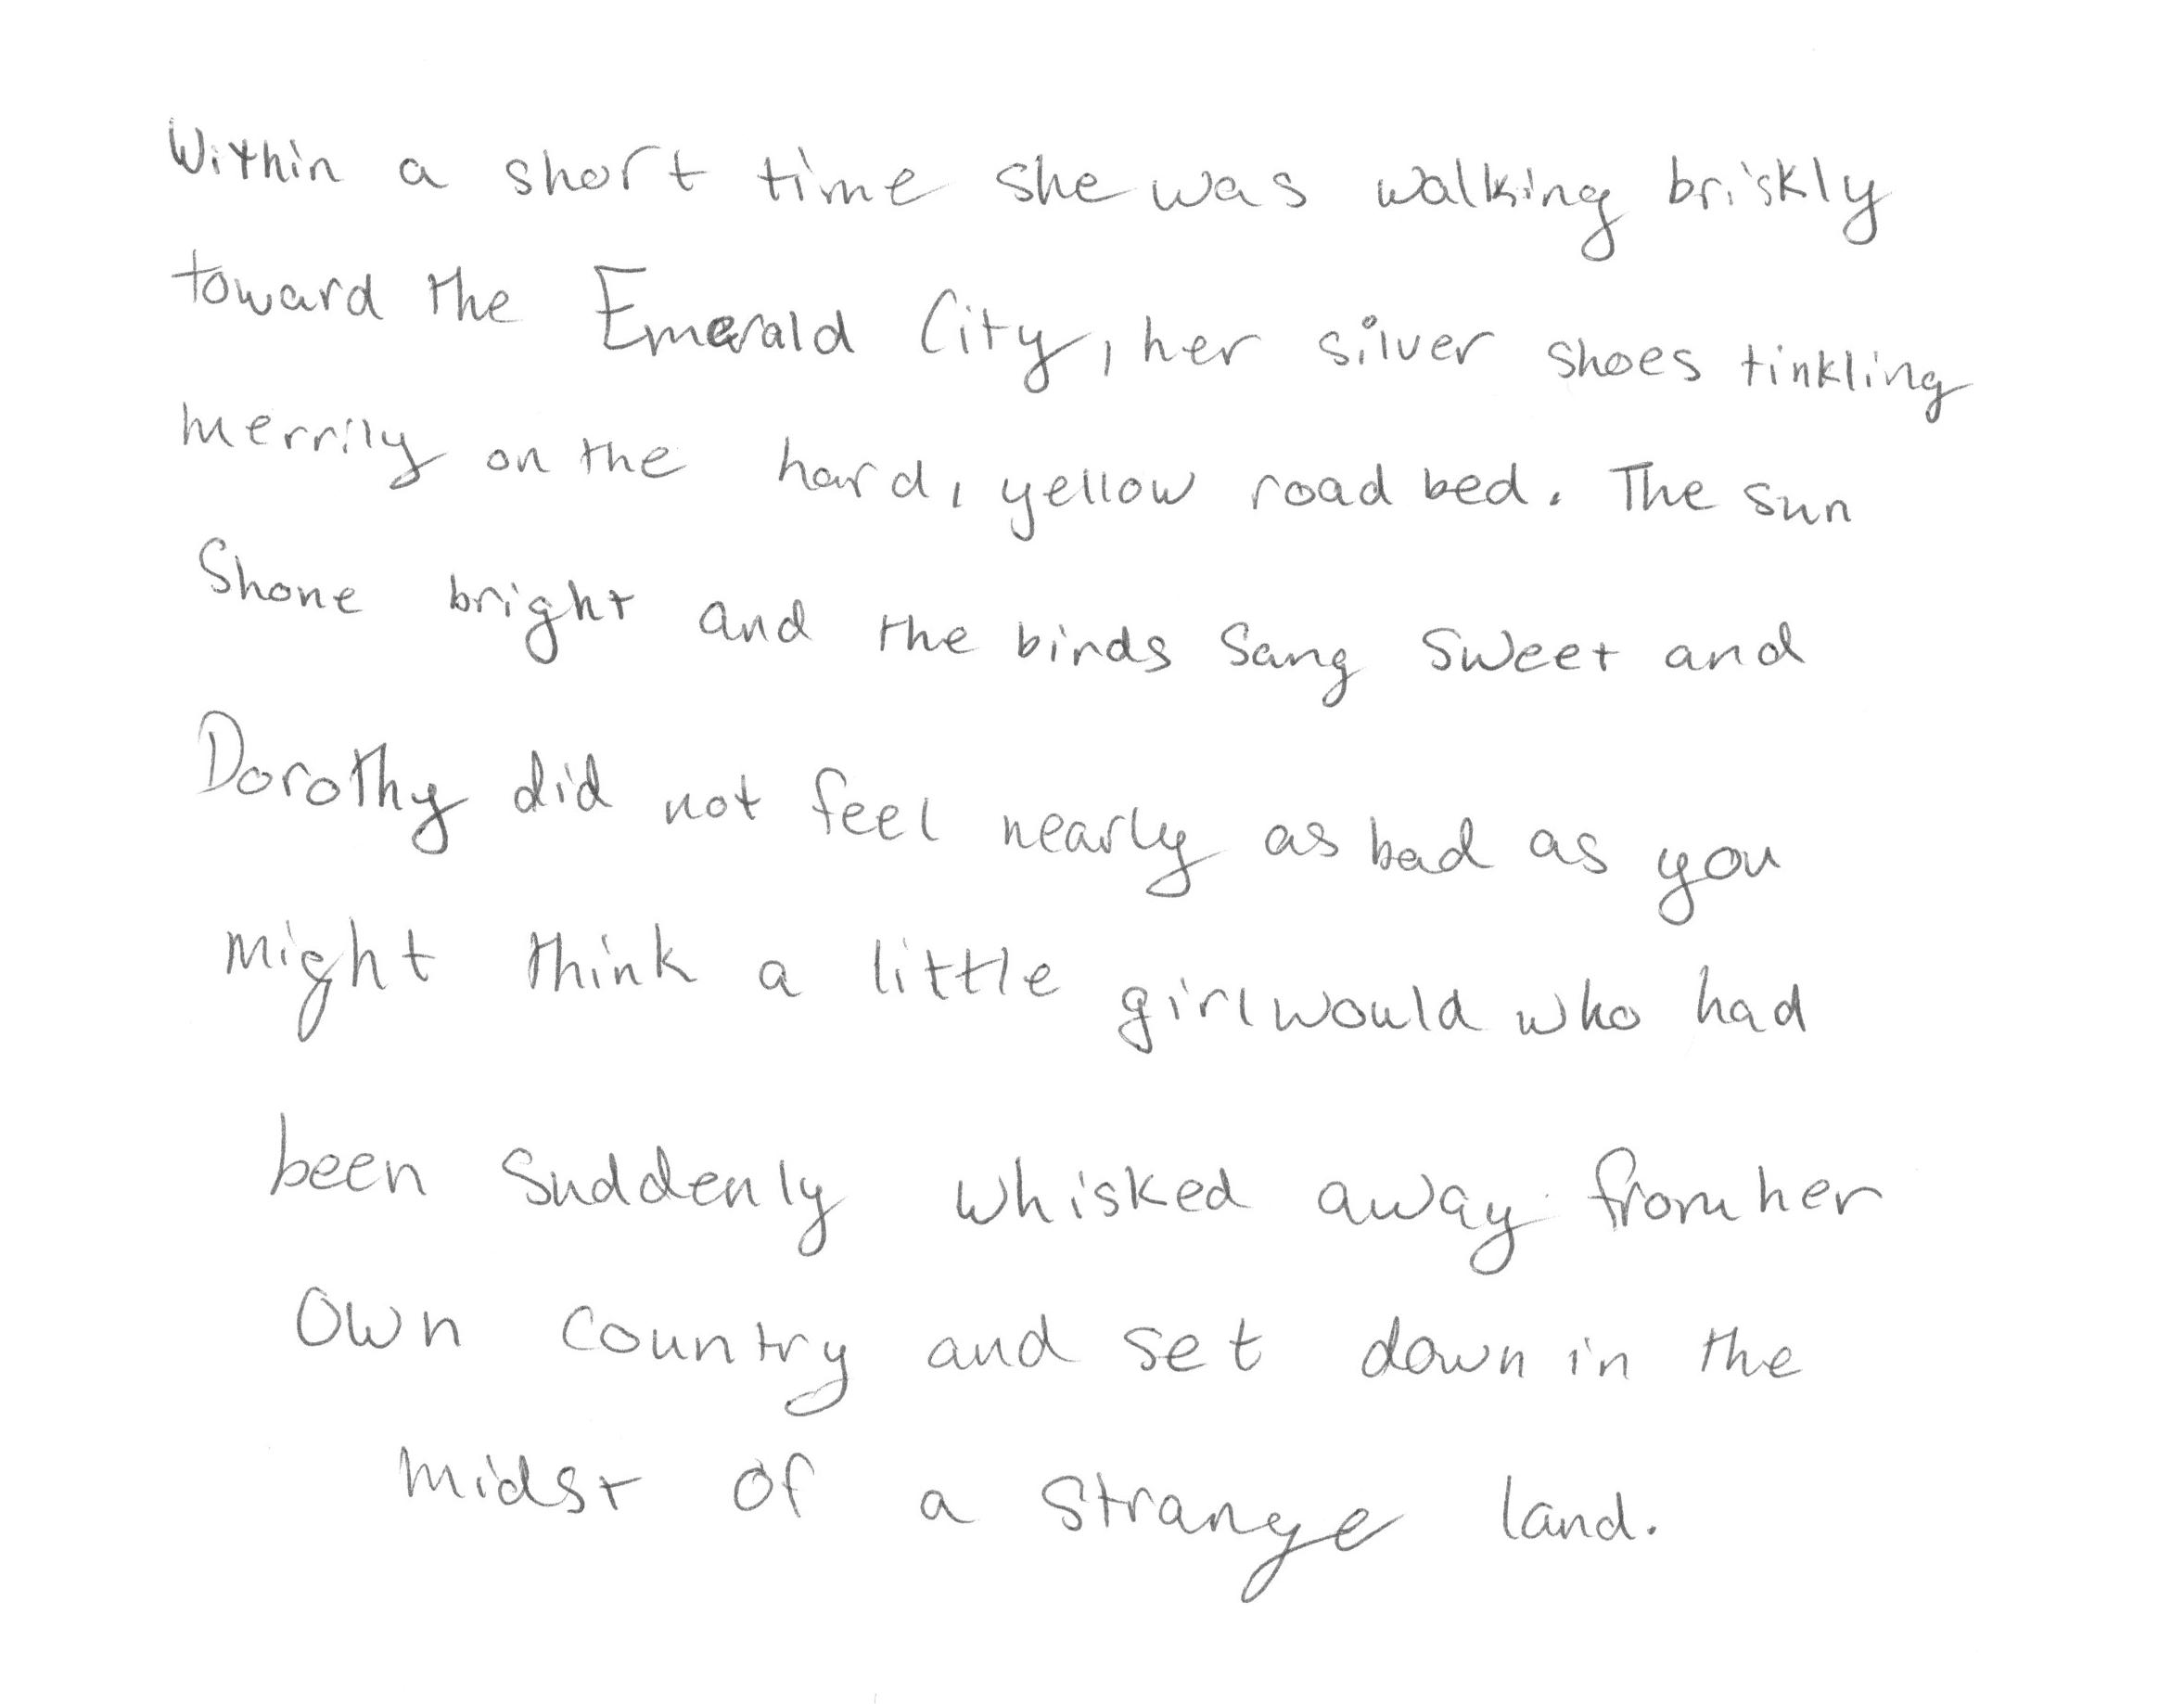 Within a short time she was walking briskly
toward the Emerald City, her silver shoes tinkling
merrily on the hard, yellow road bed. The sun
Shone bright and the birds Sang Sweet and
Dorothy did not feel nearly as bad as you
might think a little girl would who had
been Suddenly whisked away from her
Own Country and set down in the
midst of a Strange land.